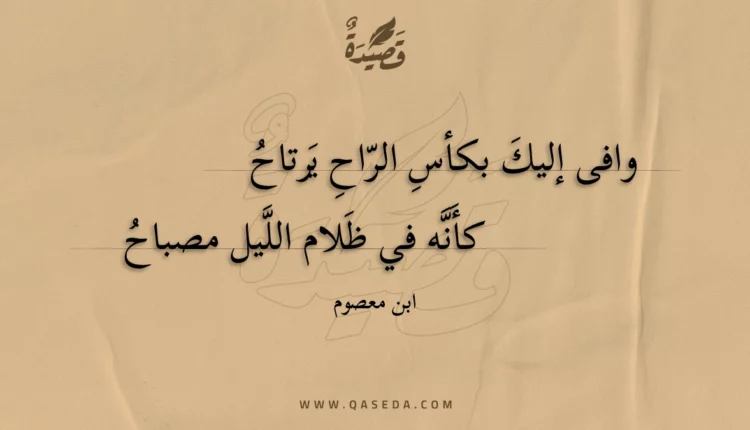 قَصِيدَةٌ
وافى إليكَ بكأسِ الرّاحِ يَرتاحُ
كأنَّه في ظَلام اللَّيل مصباحُ
ابن معصوم
WWW.QASEDA.COM